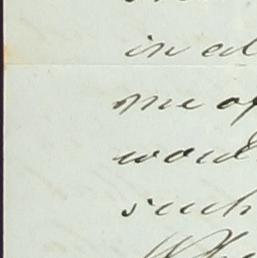 in al
me of
would
such